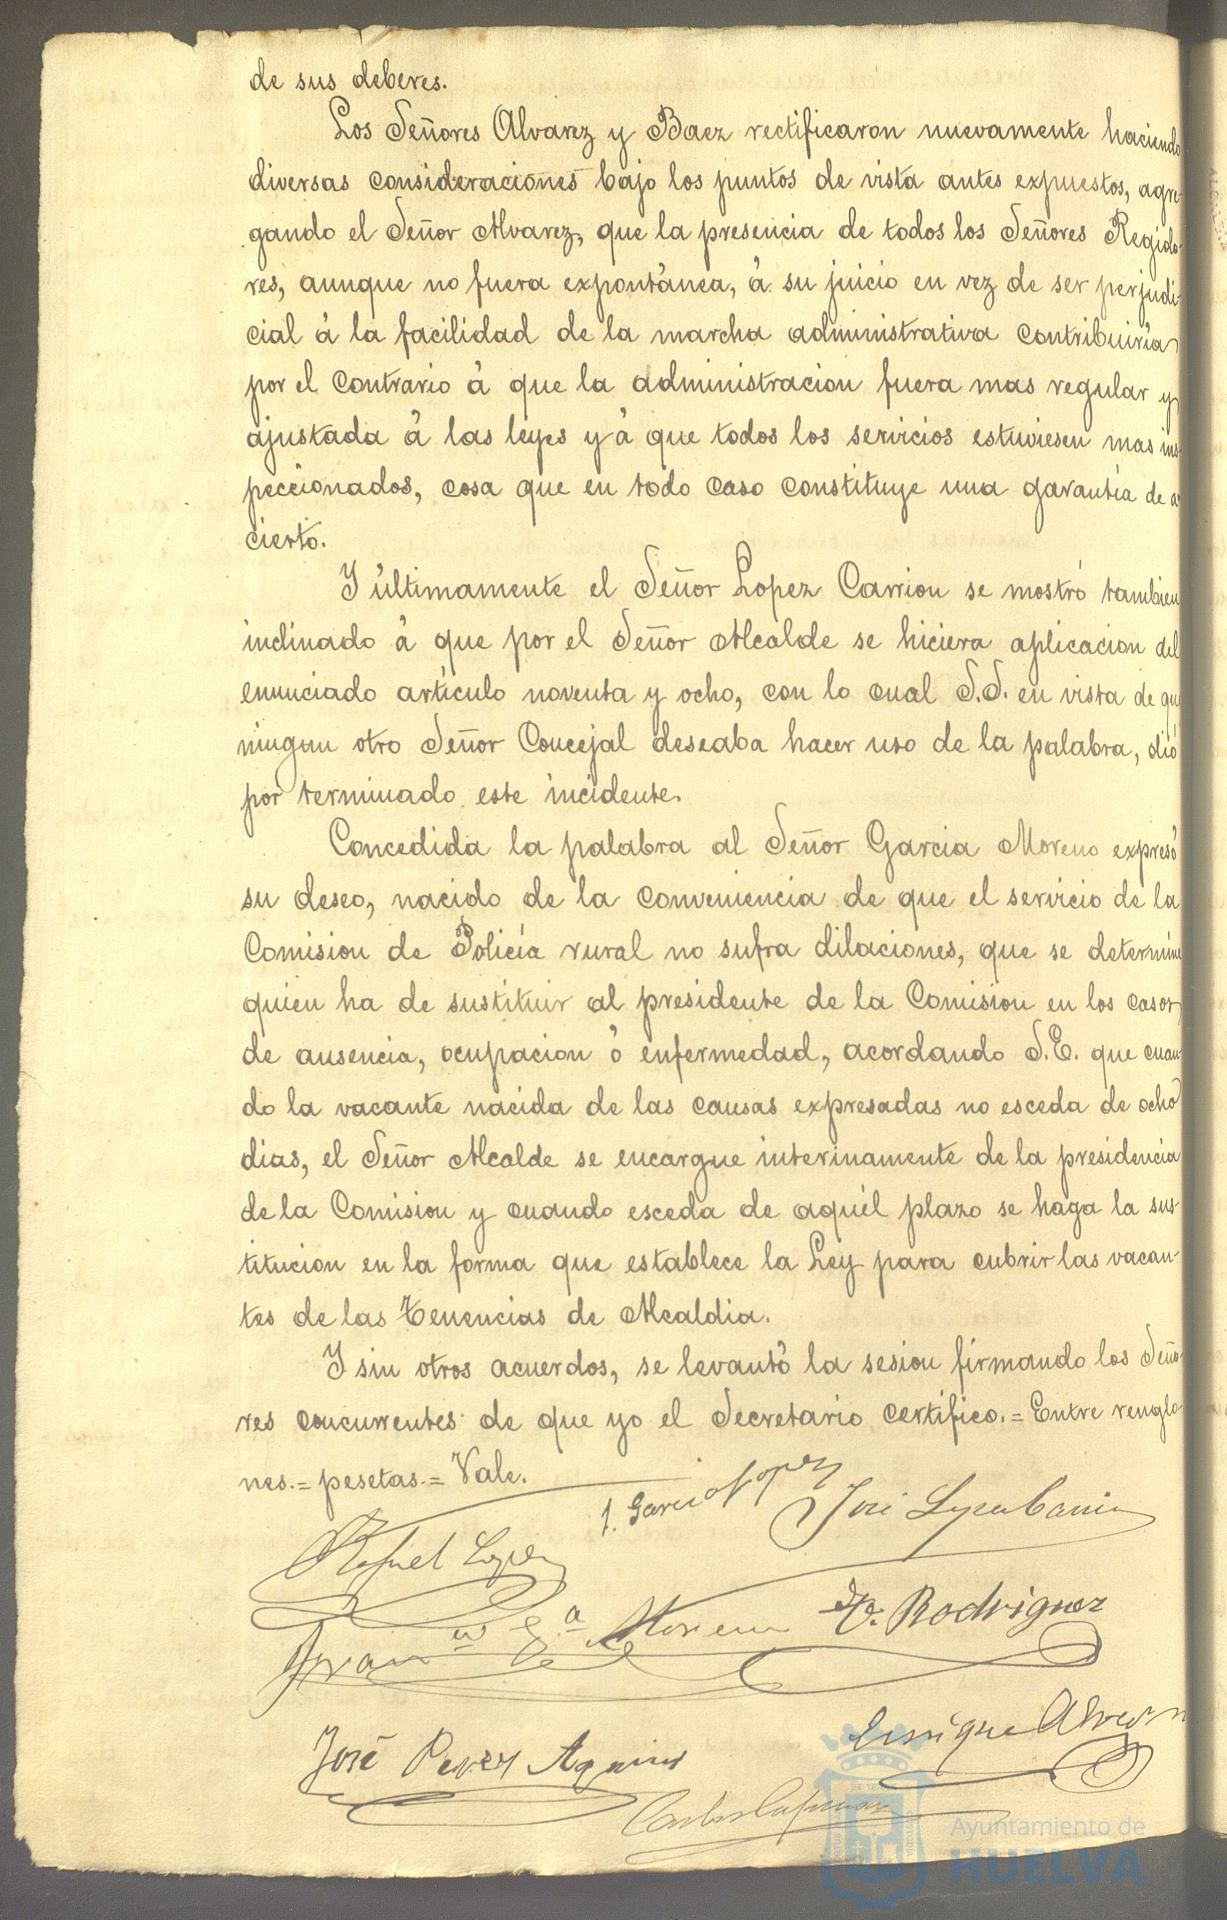 de sus deberes.
Los Señores Alvarez y Baez rectificaron nuevamente haciendo
diversas consideraciones bajo los puntos de vista antes expuestos, agre-
gando el Señor Alvarez, que la presencia de todos los Señores Regido-
res, aunque no fuera expontánea, á su juicio en vez de ser perjudi-
cial á la facilidad de la marcha administrativa contribuiría
por el contrario á que la administracion fuera mas regular y
ajustada á las leyes y á que todos los servicios estuviesen mas ins-
peccionados, cosa que en todo caso constituye una garantía de a-
cierto.
Y últimamente el Señor Lopez Carrion se mostró tambien
inclinado á que por el Señor Alcalde se hiciera aplicacion del
enunciado artículo noventa y ocho, con lo cual S.S. en vista de que
ningun otro Señor Concejal deseaba hacer uso de la palabra, dió
por terminado este incidente.
Concedida la palabra al Señor Garcia Moreno expresó
su deseo, nacido de la conveniencia de que el servicio de la
Comision de Policía rural no sufra dilaciones, que se determine
quien ha de sustituir al presidente de la Comision en los casos
de ausencia, ocupacion ó enfermedad, acordando S.E. que cuan-
do la vacante nacida de las causas expresadas no esceda de ocho
dias, el Señor Alcalde se encargue interinamente de la presidencia
de la Comision y cuando esceda de aquél plazo se haga la sus-
titucion en la forma que establece la Ley para cubrir las vacan-
tes de las Tenencias de Alcaldia.
Y sin otros acuerdos, se levantó la sesion firmando los Seño-
res concurrentes de que yo el Secretario certifico.=Entre renglo-
nes.=pesetas.=Vale.
J. Garcia Lopez
José Lopez Carrion
Rafael Lopez
Franco Ga Moreno
V. Rodriguez
Enrique Alvarez
José Perez
Carlos
Ayuntamiento de
HUELVA